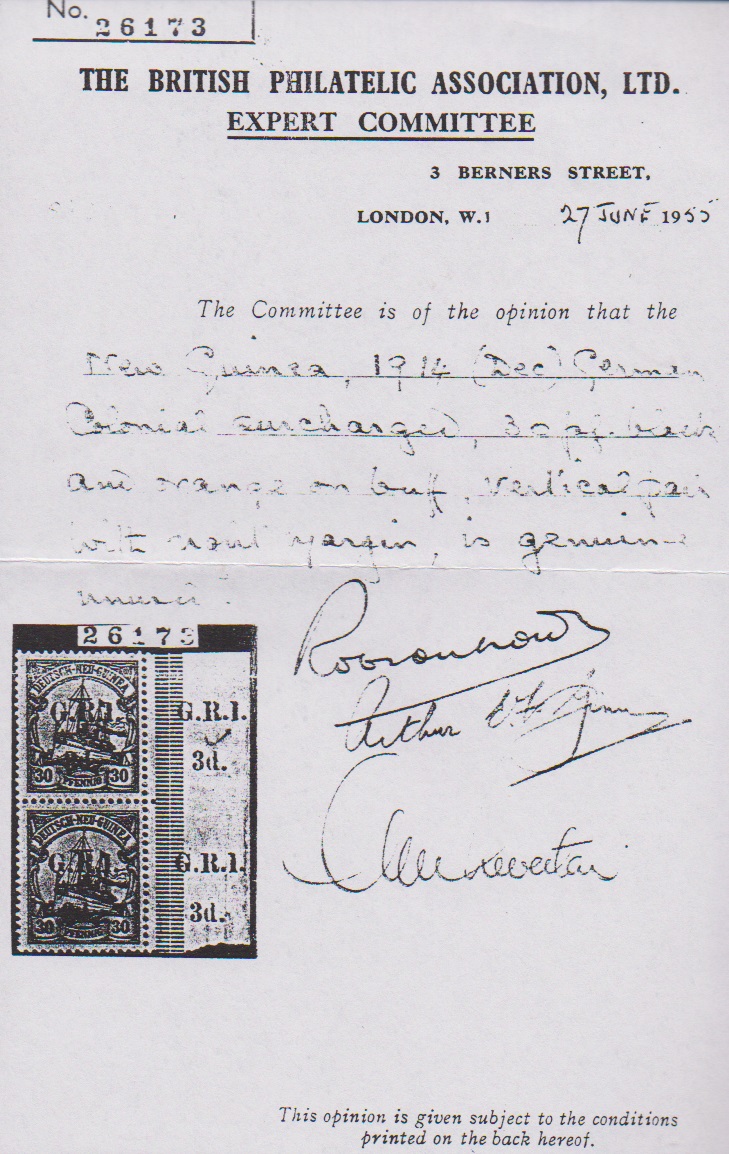 No. 26173
THE BRITISH PHILATELIC ASSOCIATION, LTD.
EXPERT COMMITTEE
3 BERNERS STREET,
LONDON, W.1 27 JUNE 1955
The Committee is of the opinion that the
New Guinea, 1914 (Dec) German
Colonial surcharged, 30 pf. black
and orange on buff, vertical pair
with margin, is genuine
26173
DEUTSCH-NEU-GUINEA
G.R.I. G.R.I.
3d.
30 PFENNIG 30
DEUTSCH-NEU-GUINEA
G.R.I. G.R.I.
3d.
30 PFENNIG 30
Arthur
This opinion is given subject to the conditions
printed on the back hereof.